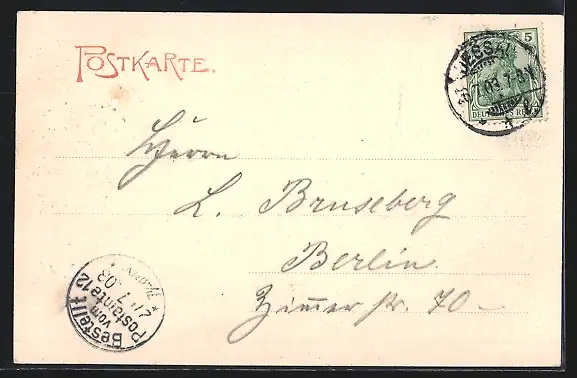 POSTKARTE.
5
DESSAU
03. 7-8N
DEUTSCHES REICH
Herrn
L. Bruseberg
Berlin.
Zimmer str. 70
Bestellt
vom
Postamte 12
24. 7. 03